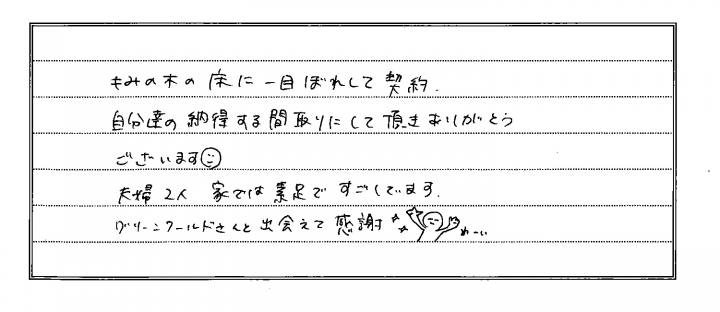 もみの木の床に一目ぼれして契約.
自分達の納得する間取りにして頂きありがとう
ございます
夫婦2人 家では素足ですごしています.
グリーンワールドさんと出会えて感謝
わーい